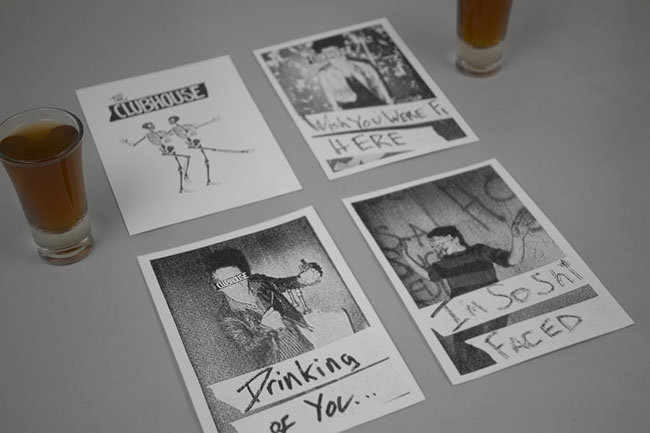 THE
CLUBHOUSE
WISH YOU WERE F
HERE
CLUBHOUSE
Drinking
OF YOU...
I'M SO SHI
FACED